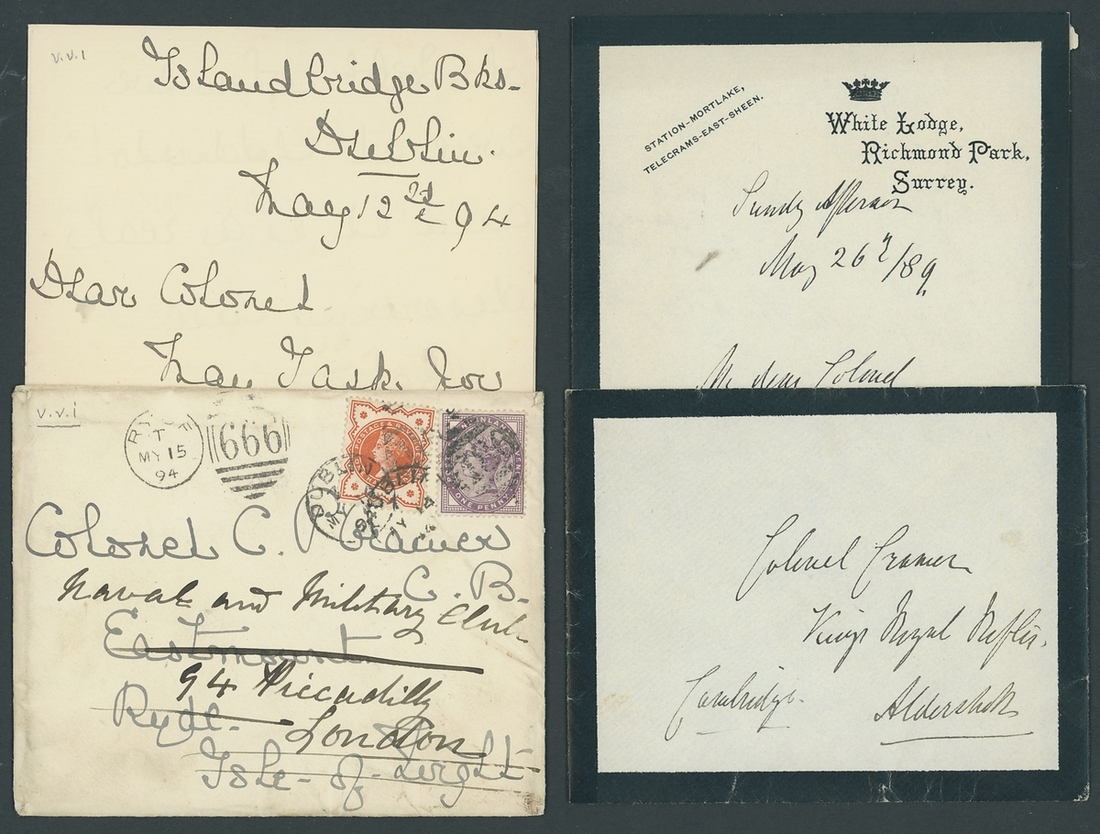 v.v.1
Islandbridge Bks.
Dublin.
May 12th 94
Dear Colonel
May I ask you
v.v.1
RYDE
MY 15
94
666
ONE PENNY
Colonel C. Cramer
C. B.
Naval and Military Club
Eastmount
94 Piccadilly
Ryde.
London
Isle-of-Wight
STATION-MORTLAKE,
TELEGRAMS-EAST-SHEEN.
White Lodge,
Richmond Park,
Surrey.
Sunday Afternoon
May 26th/89.
My dear Colonel
Colonel Cramer
Kings Royal Rifles.
Cambridge.
Aldershot